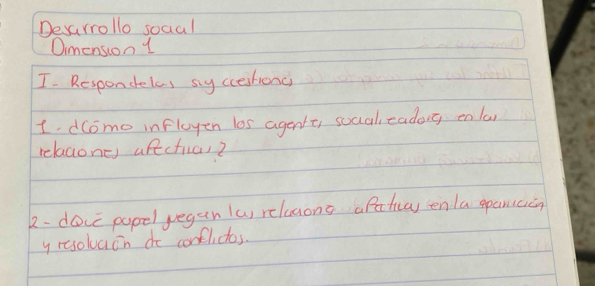 Desarrollo social
Dimension 1
I- Responde las sig cuestiones
1- ¿Cómo influyen los agentes socializadores en las
relaciones afectivas?
2- ¿Qué papel juegan las relaciones afectivas en la aparición
y resolución de conflictos.